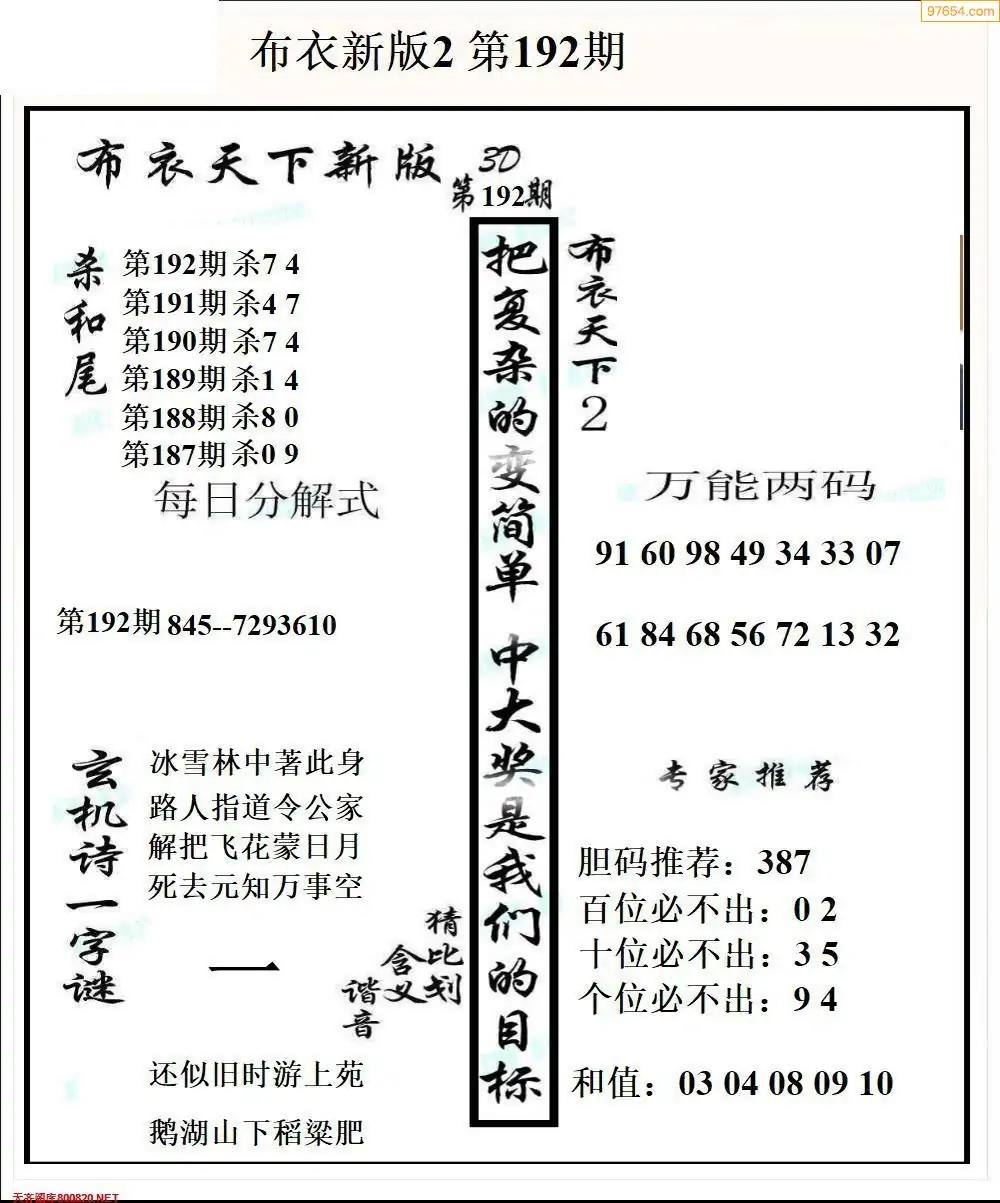 97654.com
布衣新版2 第192期
布衣天下新版 3D
第192期
杀和尾
第192期 杀7 4
第191期 杀4 7
第190期 杀7 4
第189期 杀1 4
第188期 杀8 0
第187期 杀0 9
每日分解式
第192期 845--7293610
玄机诗一字谜
冰雪林中著此身
路人指道令公家
解把飞花蒙日月
死去元知万事空
一
猜比划
含义
谐音
还似旧时游上苑
鹅湖山下稻粱肥
把复杂的变简单 中大奖是我们的目标
布衣天下2
万能两码
91 60 98 49 34 33 07
61 84 68 56 72 13 32
专家推荐
胆码推荐：387
百位必不出：0 2
十位必不出：3 5
个位必不出：9 4
和值：03 04 08 09 10
天齐图库800820.NET